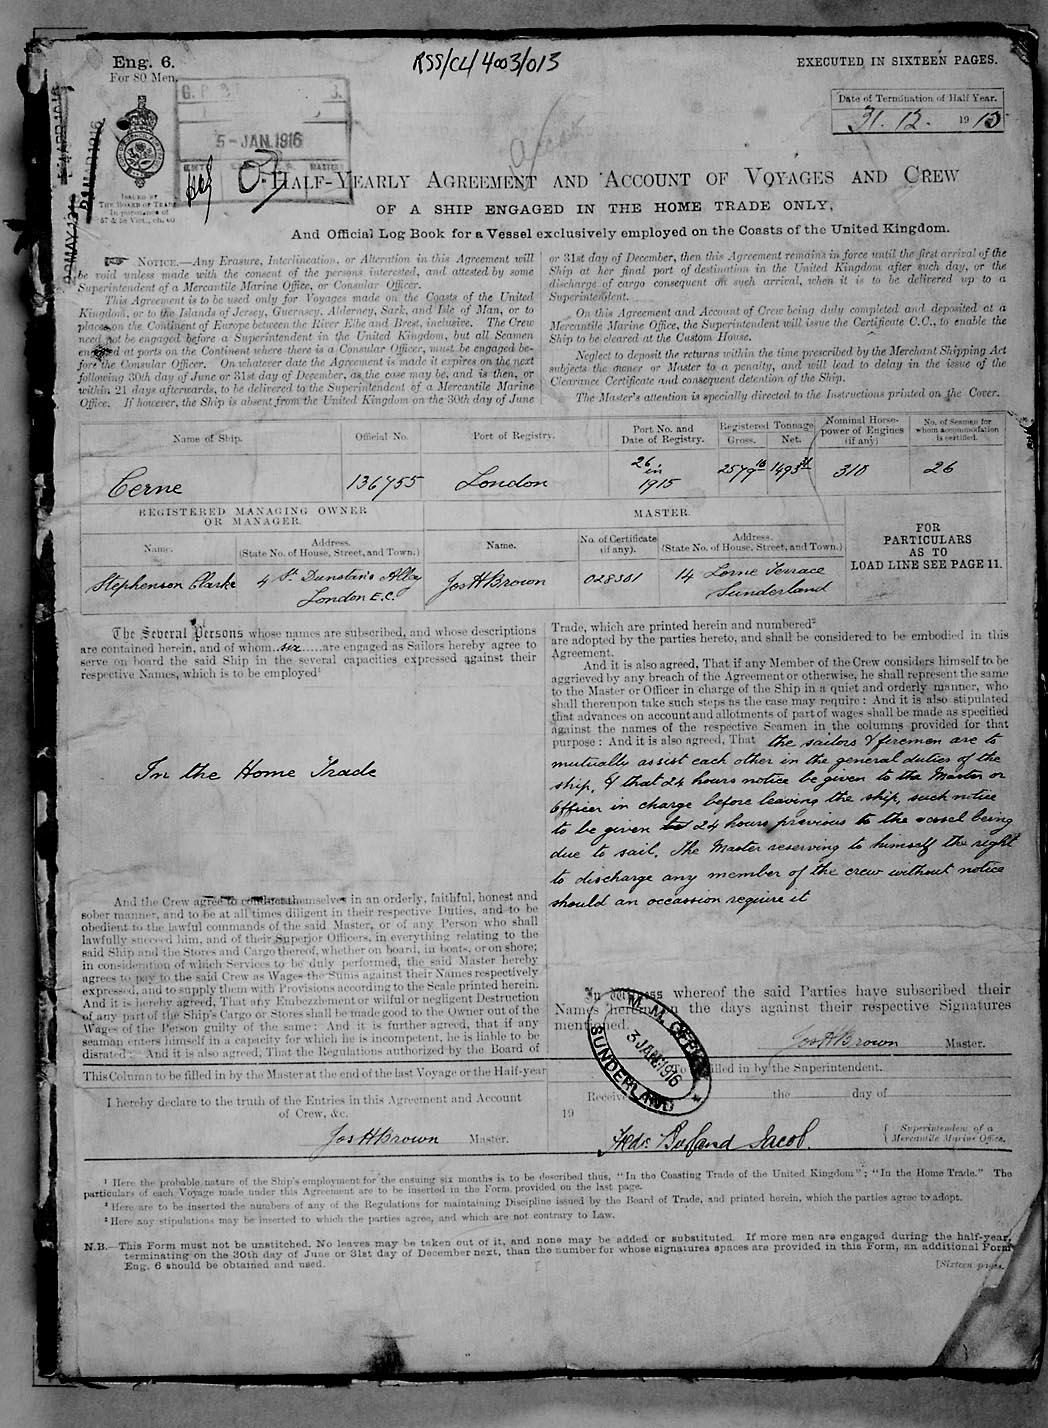 Eng. 6.
For 80 Men.
RSS/CL/4003/013
EXECUTED IN SIXTEEN PAGES.
Date of Termination of Half Year.
31. 12. 1915
5-JAN.1916
ISSUED BY
THE BOARD OF TRADE
In pursuance of
57 & 58 Vict., ch. 60
HALF-YEARLY AGREEMENT AND ACCOUNT OF VOYAGES AND CREW
OF A SHIP ENGAGED IN THE HOME TRADE ONLY,
And Official Log Book for a Vessel exclusively employed on the Coasts of the United Kingdom.
NOTICE.—Any Erasure, Interlineation, or Alteration in this Agreement will
be void unless made with the consent of the persons interested, and attested by some
Superintendent of a Mercantile Marine Office, or Consular Officer.
This Agreement is to be used only for Voyages made on the Coasts of the United
Kingdom, or to the Islands of Jersey, Guernsey, Alderney, Sark, and Isle of Man, or to
places on the Continent of Europe between the River Elbe and Brest, inclusive. The Crew
need not be engaged before a Superintendent in the United Kingdom, but all Seamen
engaged at ports on the Continent where there is a Consular Officer, must be engaged be-
fore the Consular Officer. On whatever date the Agreement is made it expires on the next
following 30th day of June or 31st day of December, as the case may be, and is then, or
within 21 days afterwards, to be delivered to the Superintendent of a Mercantile Marine
Office. If however, the Ship is absent from the United Kingdom on the 30th day of June
or 31st day of December, then this Agreement remains in force until the first arrival of the
Ship at her final port of destination in the United Kingdom after such day, or the
discharge of cargo consequent on such arrival, when it is to be delivered up to a
Superintendent.
On this Agreement and Account of Crew being duly completed and deposited at a
Mercantile Marine Office, the Superintendent will issue the Certificate C.C., to enable the
Ship to be cleared at the Custom House.
Neglect to deposit the returns within the time prescribed by the Merchant Shipping Act
subjects the owner or Master to a penalty, and will lead to delay in the issue of the
Clearance Certificate and consequent detention of the Ship.
The Master's attention is specially directed to the Instructions printed on the Cover.
Name of Ship. Official No. Port of Registry. Port No. and Date of Registry. Registered Tonnage Gross. Net. Nominal Horse-power of Engines (if any) No. of Seamen for whom accommodation is certified.
Cerne 136755 London 26 in 1915 2579 1493 310 26
REGISTERED MANAGING OWNER OR MANAGER.
MASTER.
Name. Address. (State No. of House, Street, and Town.) Name. No. of Certificate (if any). Address. (State No. of House, Street, and Town.)
FOR PARTICULARS AS TO LOAD LINE SEE PAGE 11.
Stephenson Clarke 4 St. Dunstan's Alley London E.C. Jos H Brown 028301 14 Lorne Terrace Sunderland
The Several Persons whose names are subscribed, and whose descriptions
are contained herein, and of whom six are engaged as Sailors hereby agree to
serve on board the said Ship in the several capacities expressed against their
respective Names, which is to be employed¹
In the Home Trade
And the Crew agree to conduct themselves in an orderly, faithful, honest and
sober manner, and to be at all times diligent in their respective Duties, and to be
obedient to the lawful commands of the said Master, or of any Person who shall
lawfully succeed him, and of their Superior Officers, in everything relating to the
said Ship and the Stores and Cargo thereof, whether on board, in boats, or on shore;
in consideration of which Services to be duly performed, the said Master hereby
agrees to pay to the said Crew as Wages the Sums against their Names respectively
expressed, and to supply them with Provisions according to the Scale printed herein.
And it is hereby agreed, That any Embezzlement or wilful or negligent Destruction
of any part of the Ship's Cargo or Stores shall be made good to the Owner out of the
Wages of the Person guilty of the same: And it is further agreed, that if any
seaman enters himself in a capacity for which he is incompetent, he is liable to be
disrated: And it is also agreed, That the Regulations authorized by the Board of
Trade, which are printed herein and numbered²
are adopted by the parties hereto, and shall be considered to be embodied in this
Agreement.
And it is also agreed, That if any Member of the Crew considers himself to be
aggrieved by any breach of the Agreement or otherwise, he shall represent the same
to the Master or Officer in charge of the Ship in a quiet and orderly manner, who
shall thereupon take such steps as the case may require: And it is also stipulated
that advances on account and allotments of part of wages shall be made as specified
against the names of the respective Seamen in the columns provided for that
purpose: And it is also agreed, That the sailors & firemen are to
mutually assist each other in the general duties of the
ship, & that 24 hours notice be given to the Master or
Officer in charge before leaving the ship, such notice
to be given 24 hours previous to the vessel being
due to sail. The Master reserving to himself the right
to discharge any member of the crew without notice
should an occassion require it
In Witness whereof the said Parties have subscribed their
Names herein on the days against their respective Signatures
mentioned.
Jos H Brown Master.
M. M. OFFICE
3 JAN 1916
SUNDERLAND
This Column to be filled in by the Master at the end of the last Voyage or the Half-year
I hereby declare to the truth of the Entries in this Agreement and Account
of Crew, &c.
Jos H Brown Master.
To be filled in by the Superintendent.
Received the day of
19
Jacob
Superintendent of a
Mercantile Marine Office.
¹ Here the probable nature of the Ship's employment for the ensuing six months is to be described thus, "In the Coasting Trade of the United Kingdom"; "In the Home Trade." The
particulars of each Voyage made under this Agreement are to be inserted in the Form provided on the last page.
² Here are to be inserted the numbers of any of the Regulations for maintaining Discipline issued by the Board of Trade, and printed herein, which the parties agree to adopt.
³ Here any stipulations may be inserted to which the parties agree, and which are not contrary to Law.
N.B.—This Form must not be unstitched. No leaves may be taken out of it, and none may be added or substituted. If more men are engaged during the half-year,
terminating on the 30th day of June or 31st day of December next, than the number for whose signatures spaces are provided in this Form, an additional Form
Eng. 6 should be obtained and used.
[Sixteen pages.